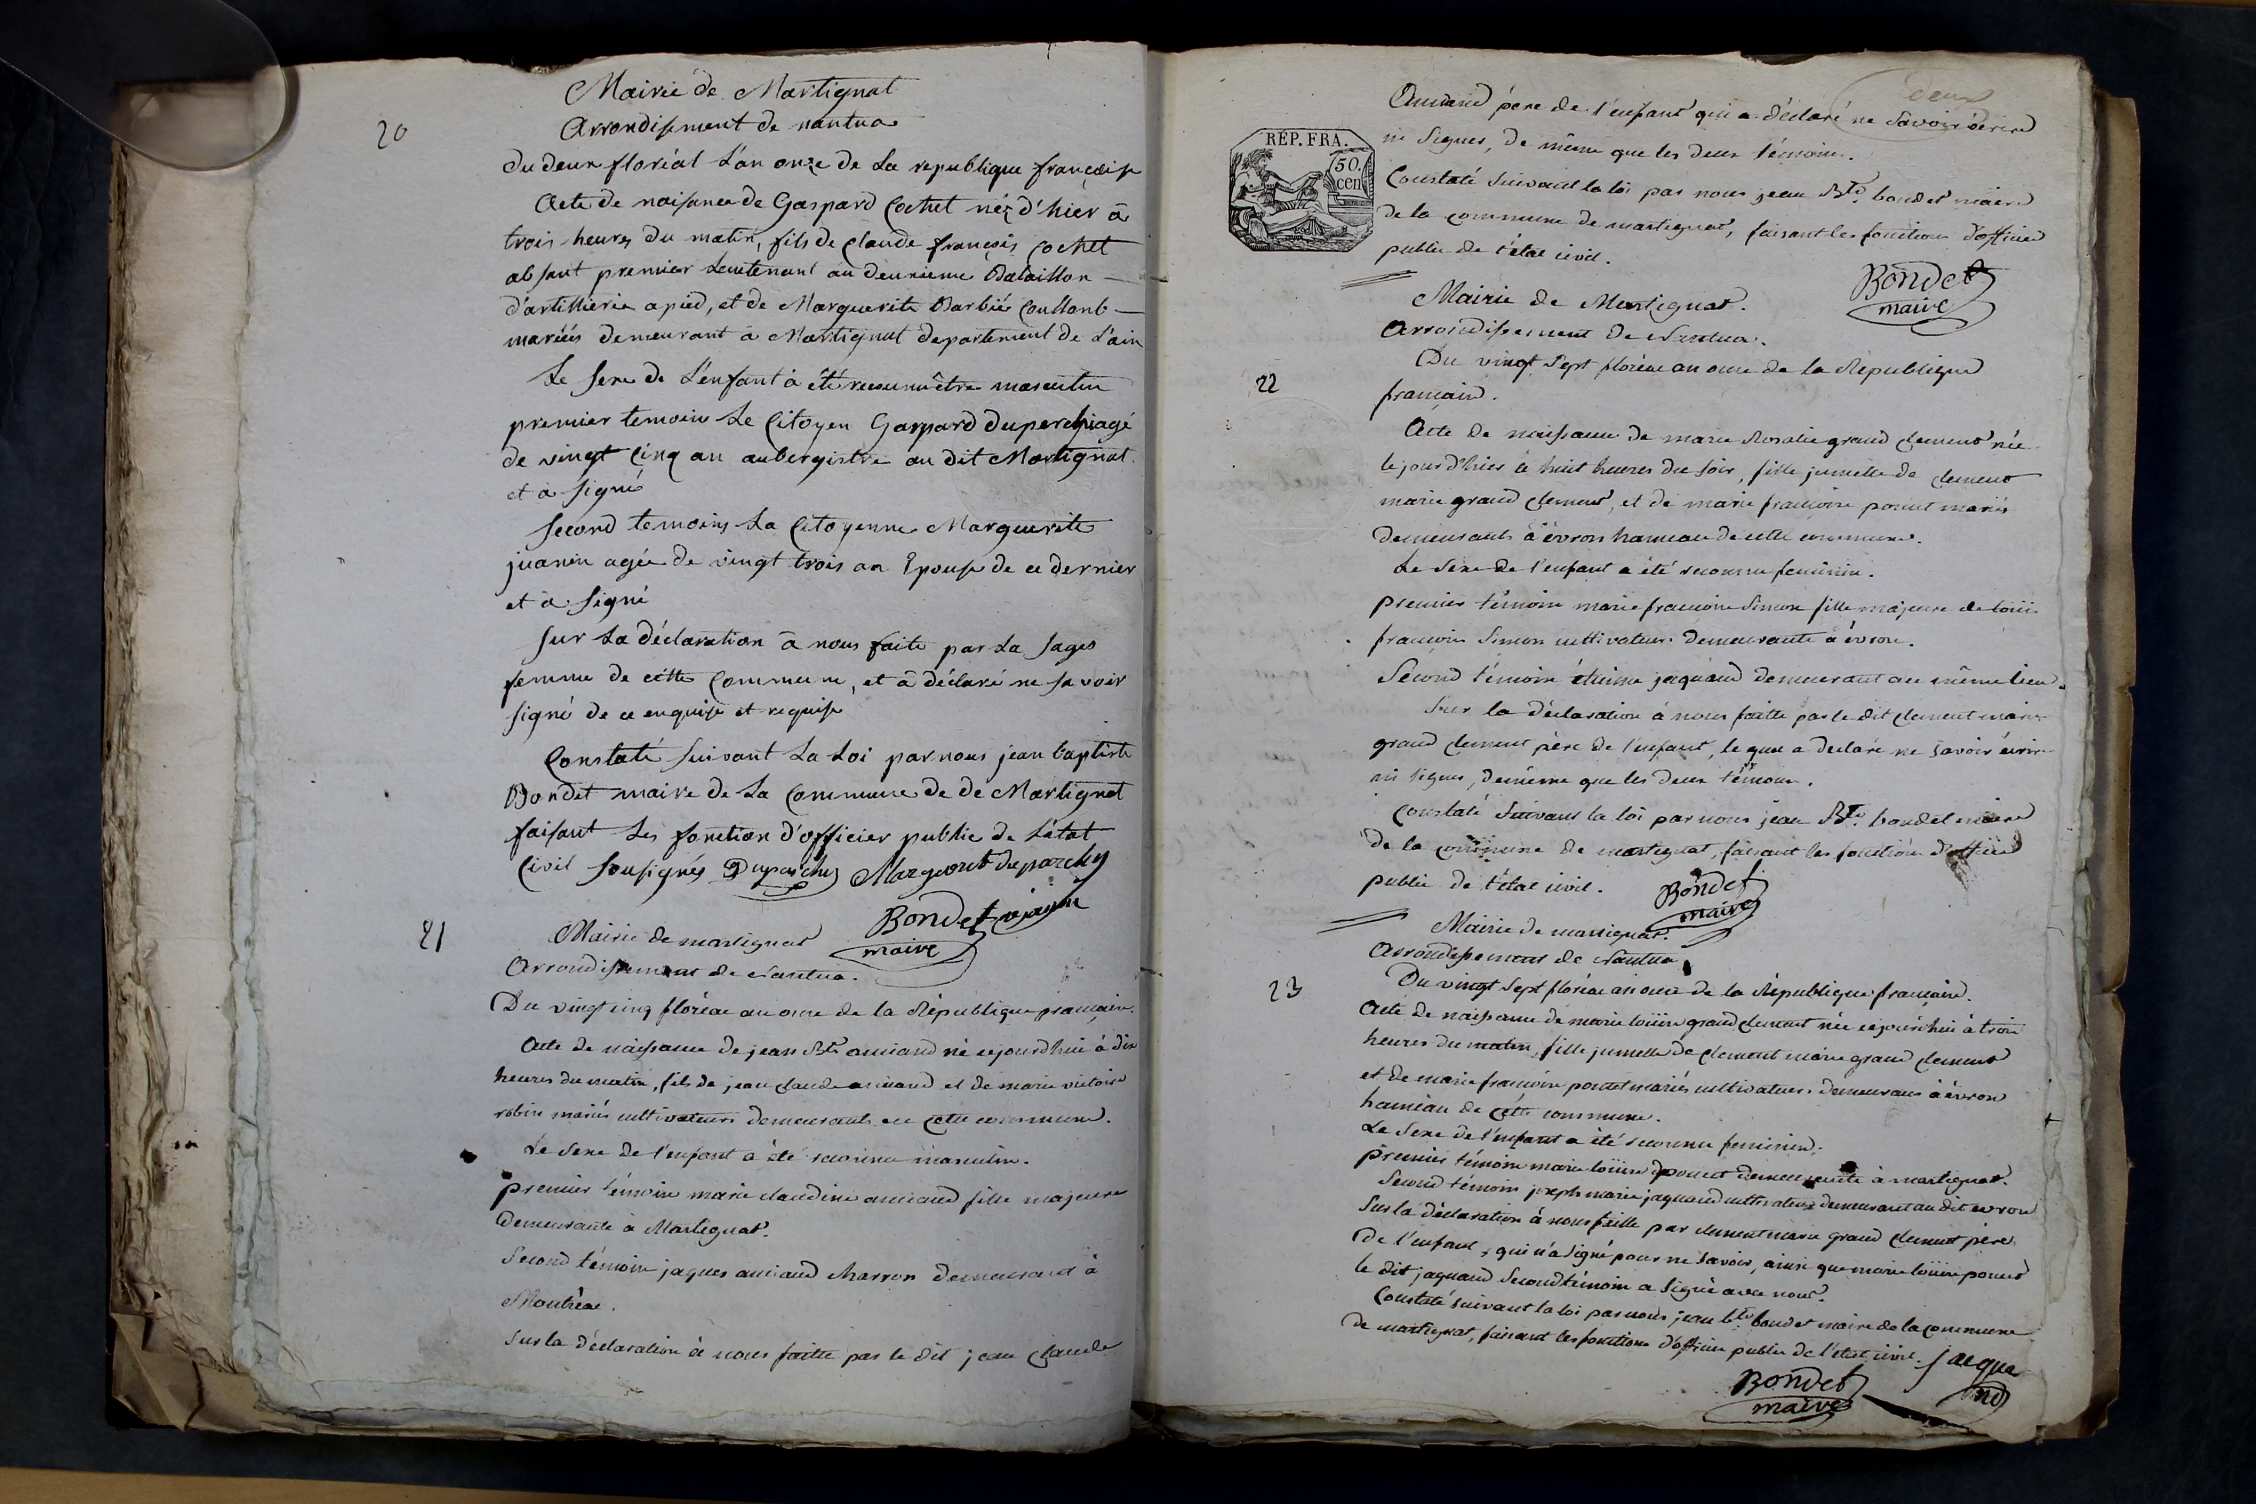 20
Mairie de Martignat
Arrondissement de nantua
du deux floréal L'an onze de La republique françoise
Acte de naissance de Gaspard Cochet néz d'hier à
trois heures du matin, fils de Claude françois Cochet
absent premier Leutenant au deuxieme Bataillon
d'artillierie a pied, et de Marguerite Barbié Coullant
mariés demeurant à Martignat departement de L'ain
Le sexe de L'enfant à été reconnu être masculin
premier temoin Le Citoyen Gaspard Duperchiagé
de vingt cinq an aubergistre au dit Martignat
et à signé
second temoins La Citoyenne Marguerite
juanin agée de vingt trois an Epouse de ce dernier
et à signé
sur La déclaration à nous faite par La sages
femme de cette Commune, et à déclaré ne savoir
signé de ce enquise et requise
Constaté suivant La Loi par nous jean baptiste
Bondet maire de La Commune de de Martignat
faisant Les fonction d'officier public de L'état
Civil sousignés Duparchy Margerit duparchy
Bondet
maire
21
Mairie de martignat
Arrondissement de Nantua.
Du vingt cinq floréal an onze de la République française.
Acte de naissance de jean Bte amiaud né cejourdhui à dix
heures du matin, fils de jean claude amiaud et de marie victoire
robin mariés cultivateurs demeurants en cette commune.
Le sexe de l'enfant a été reconnu masculin.
premier témoin marie claudine amiaud fille majeure
demeurante à Martignat.
Second témoin jaques amiaud charron demeurant à
Montréal.
Sur la déclaration à nous faitte par le dit jean claude
deux
Amiaud père de l'enfant qui a déclaré ne Savoir écrire
ni Signer, de même que les deux témoins.
RÉP. FRA.
50.
cen
Constaté suivant la loi par nous jean Bte. bondet maire
de la commune de martignat, faisant les fonctions d'officier
public de l'état civil.
Bondet
maire
Mairie de Martignat.
Arrondissement de Nantua.
22
Du vingt Sept floréal an onze de la République
française.
Acte de naissance de marie Rosalie grand clement née
le jour d'hier à huit heures du soir, fille jumelle de clement
marie grand clement, et de marie françoise poncet mariés
demeurants à évron hameau de cette commune.
Le sexe de l'enfant a été reconnu feminin.
premier témoin marie françoise Simon fille majeure de louis
françois Simon cultivateur demeurante à évron.
Second témoin étienne jaquand demeurant au même lieu.
Sur la déclaration à nous faitte par le dit clement marie
grand clement père de l'enfant, le quel a declaré ne savoir écrire
ni signer, demême que les deux témoins.
Constaté Suivant la loi par nous jean Bte. bondet maire
de la commune de martignat, faisant les fonctions d'officier
public de l'état civil.
Bondet
maire
Mairie de martignat.
Arrondissement de Nantua
23
Du vingt Sept floréal an onze de la République française.
Acte de naissance de marie louise grand clement née cejourdhui à trois
heures du matin, fille jumelle de clement marie grand clement
et de marie françoise poncet mariés cultivateurs demeurans à évron
hameau de cette commune.
Le Sexe de l'enfant a été reconnu feminin.
premier témoin marie louise poncet demeurante à martignat.
Second témoin joseph marie jaquand cultivateur demeurant au dit evron
Sur la déclaration à nous faitte par clement marie grand clement père
de l'enfant, qui n'a signé pour ne savoir, ainsi que marie louise poncet
le dit jaquand Second témoin a signé avec nous.
Constaté suivant la loi par nous jean bte bondet maire de la commune
de martignat, faisant les fonctions d'officier public de l'état civil. jacqua
nd
Bondet
maire